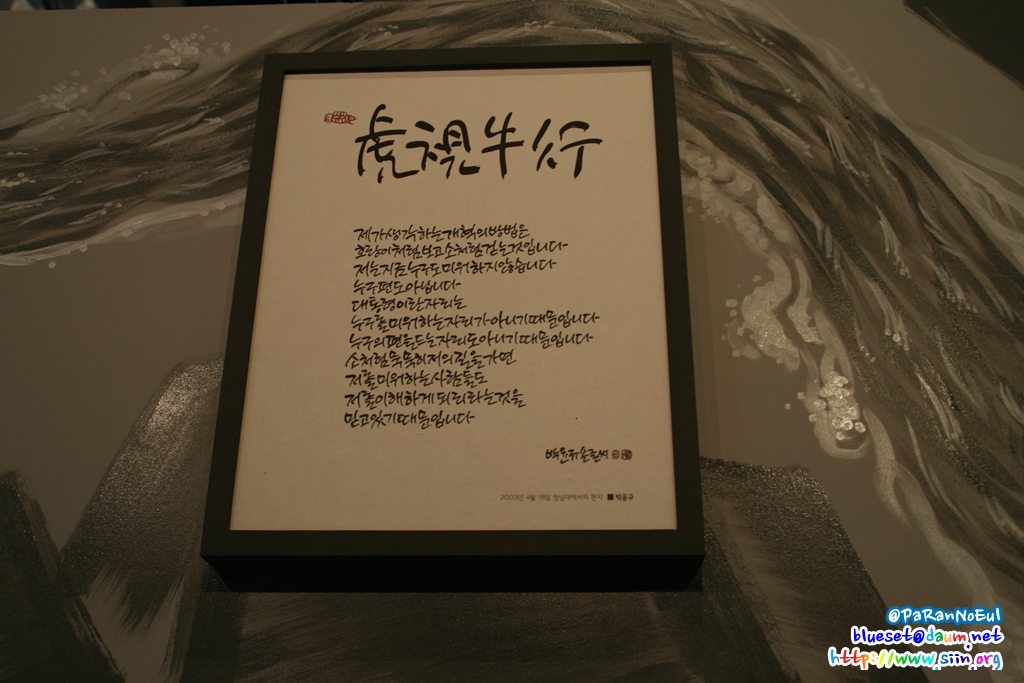 虎視牛行
제가 생각하는 개혁의 방법은
호랑이처럼 보고 소처럼 걷는 것입니다
저는 지금 누구도 미워하지 않습니다
누구 편도 아닙니다
대통령이란 자리는
누구를 미워하는 자리가 아니기 때문입니다
누구의 편을 드는 자리도 아니기 때문입니다
소처럼 묵묵히 저의 길을 가면
저를 미워하는 사람들도
저를 이해하게 되리라는 것을
믿고 있기 때문입니다
박윤규 손글씨
2003년 4월 18일 청남대에서의 편지 ■ 박윤규
@PaRanNoEul
blueset@daum.net
http://www.siin.org